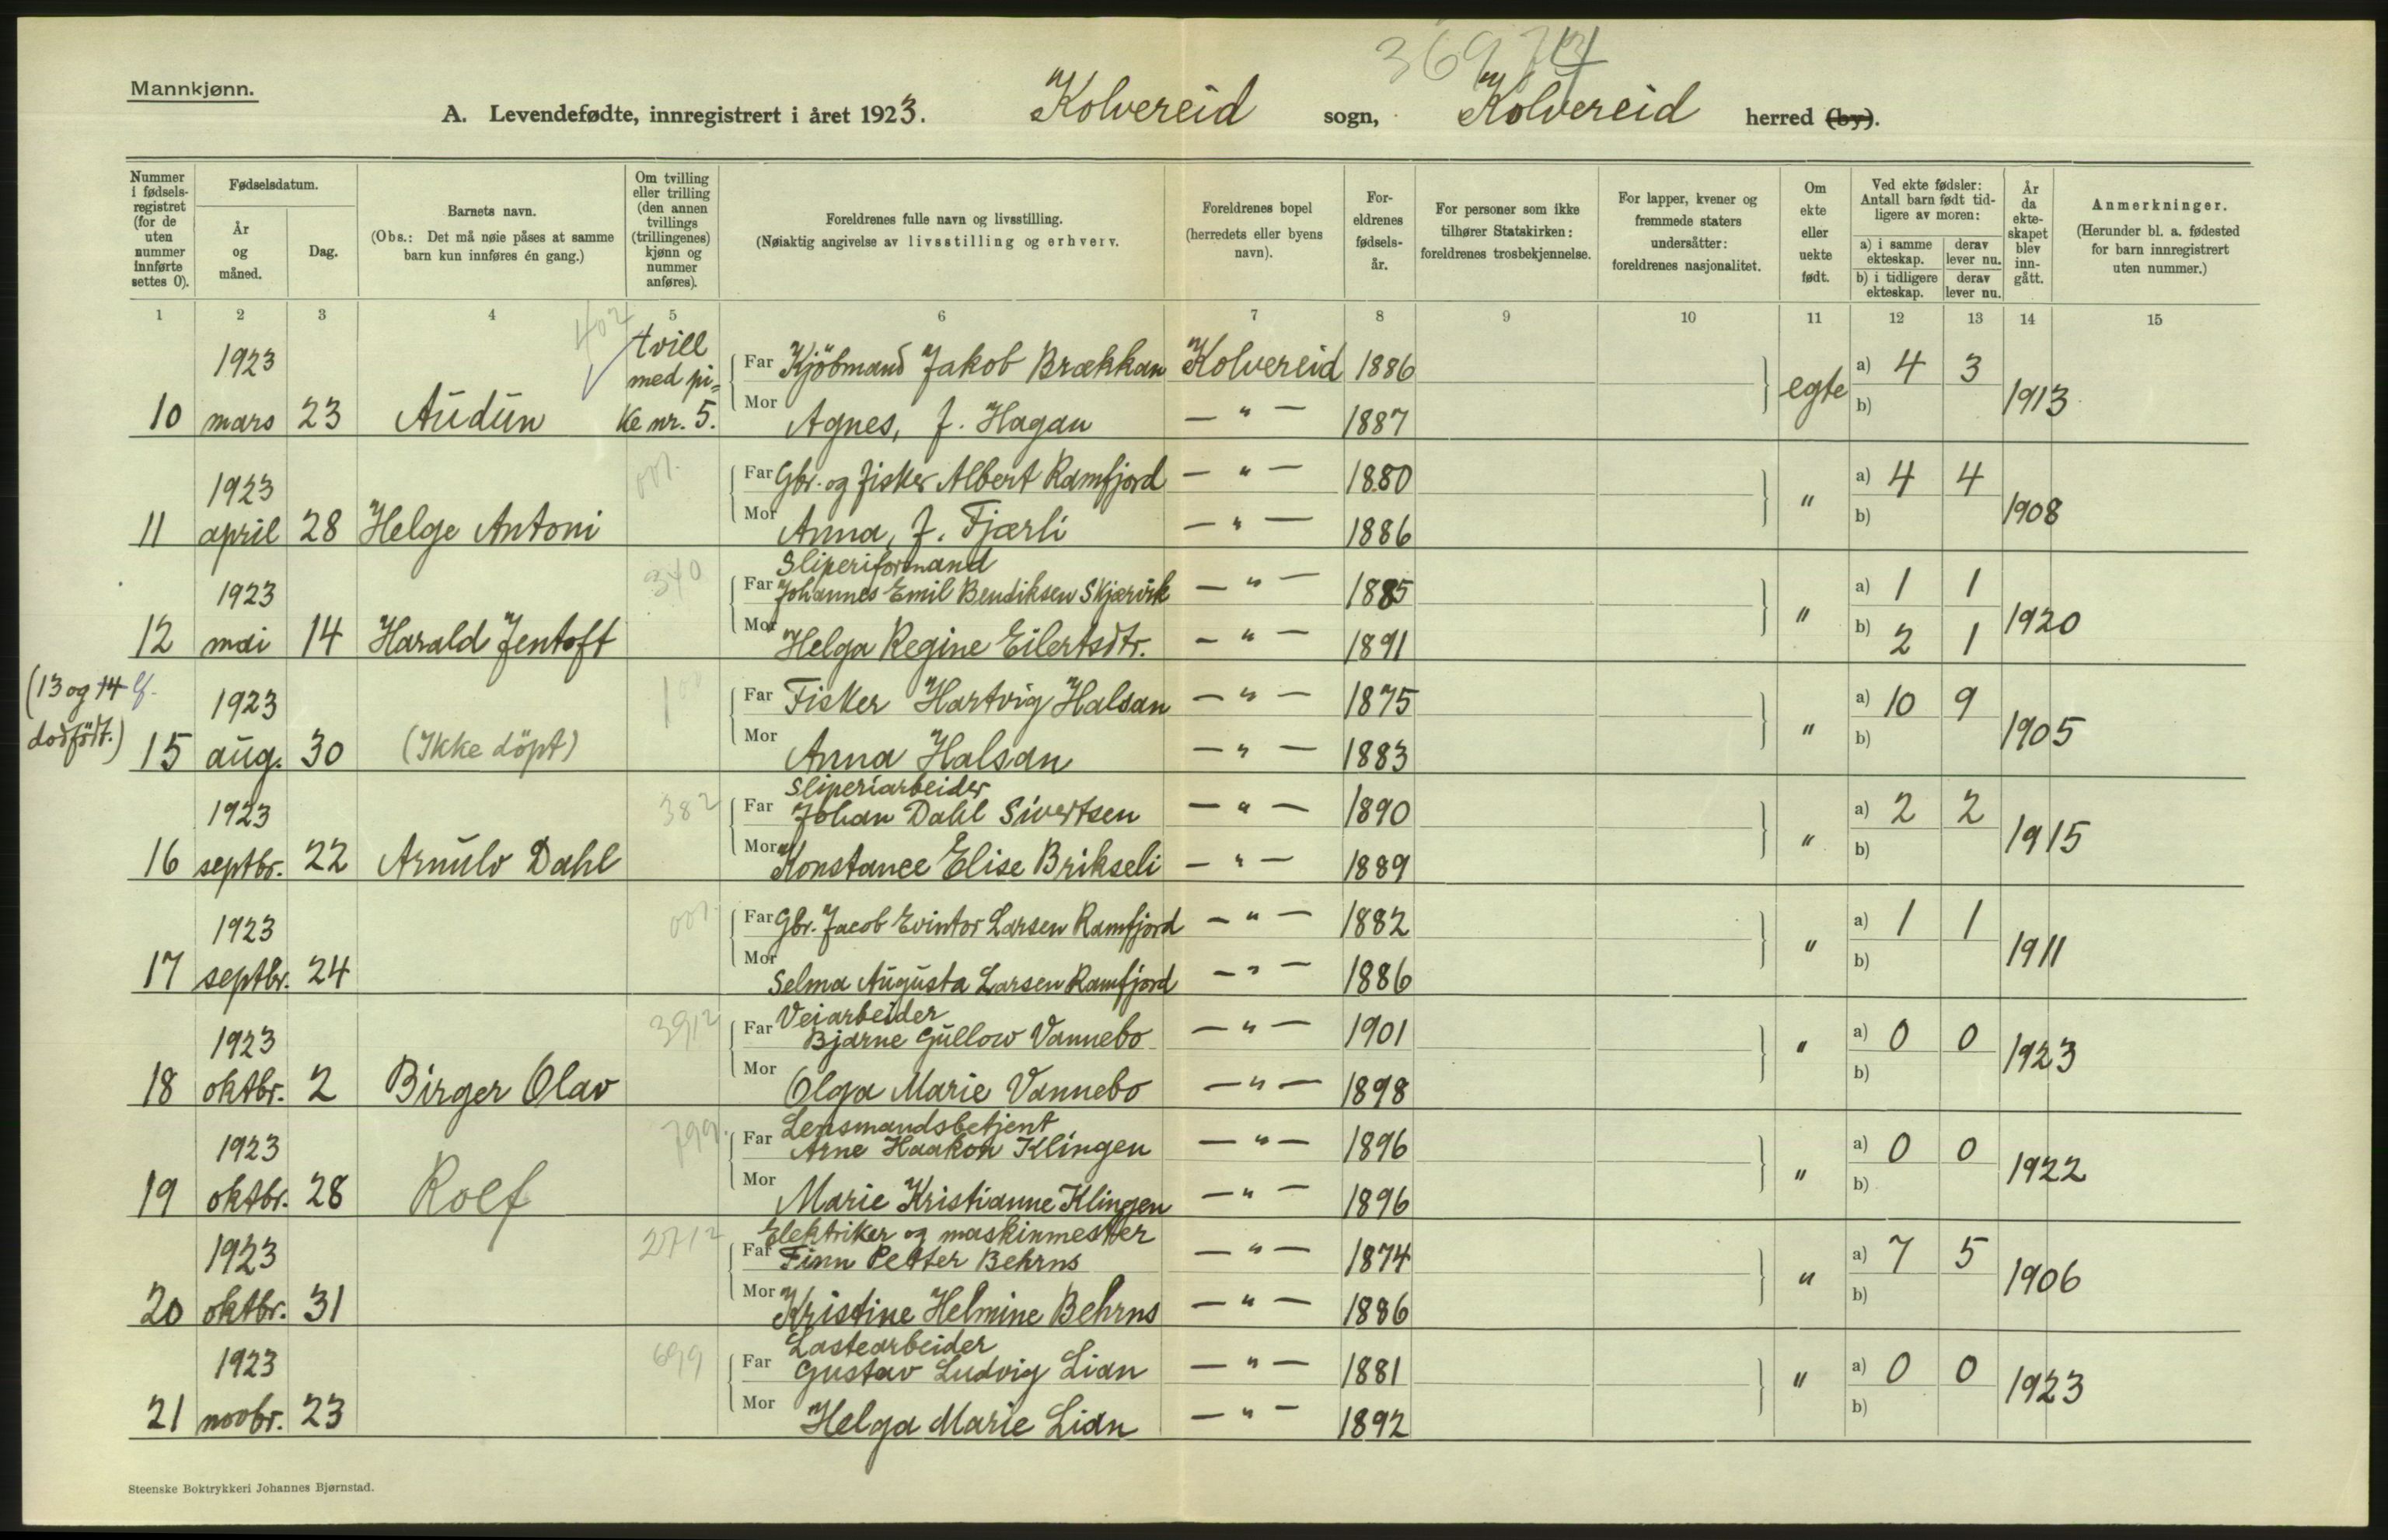 3697
Mannkjønn.
A. Levendefødte, innregistrert i året 1923. Kolvereid sogn, Kolvereid herred (by).
Nummer i fødselsregistret (for de uten nummer innførte settes 0).
Fødselsdatum.
År og måned.
Dag.
Barnets navn.
(Obs.: Det må nøie påses at samme barn kun innføres én gang.)
Om tvilling eller trilling (den annen tvillings (trillingenes) kjønn og nummer anføres).
Foreldrenes fulle navn og livsstilling.
(Nøiaktig angivelse av livsstilling og erhverv.
Foreldrenes bopel (herredets eller byens navn).
Foreldrenes fødselsår.
For personer som ikke tilhører Statskirken: foreldrenes trosbekjennelse.
For lapper, kvener og fremmede staters undersåtter: foreldrenes nasjonalitet.
Om ekte eller uekte født.
Ved ekte fødsler: Antall barn født tidligere av moren:
a) i samme ekteskap.
derav lever nu.
b) i tidligere ekteskap.
derav lever nu.
År da ekteskapet blev inngått.
Anmerkninger.
(Herunder bl. a. fødested for barn innregistrert uten nummer.)
1 2 3 4 5 6 7 8 9 10 11 12 13 14 15
402
1923 tvill med pi= Far Kjöbmand Jakob Brækkan Kolvereid 1886 egte a) 4 3 1913
10 mars 23 Audun ke nr. 5. Mor Agnes, f. Hagan — " — 1887 b)
001.
1923 Far Gbr. og fisker Albert Ramfjord — " — 1880 " a) 4 4 1908
11 april 28 Helge Antoni Mor Anna, f. Fjærli — " — 1886 b)
340 Sliperiformand
1923 Far Johannes Emil Bendiksen Skjærvik — " — 1885 " a) 1 1 1920
12 mai 14 Harald Jentoft Mor Helga Regine Eilertsdtr. — " — 1891 b) 2 1
(13 og 14
dödfödt.)
1923 100 Far Fisker Hartvig Halsan — " — 1875 " a) 10 9 1905
15 aug. 30 (Ikke döpt) Mor Anna Halsan — " — 1883 b)
Sliperiarbeider
1923 382 Far Johan Dahl Sivertsen — " — 1890 " a) 2 2 1915
16 septbr. 22 Arnulv Dahl Mor Konstance Elise Brikseli — " — 1889 b)
1923 001. Far Gbr. Jacob Evintor Larsen Ramfjord — " — 1882 " a) 1 1 1911
17 septbr. 24 Mor Selma Augusta Larsen Ramfjord — " — 1886 b)
3912 Veiarbeider
1923 Far Bjarne Gullow Vannebo — " — 1901 " a) 0 0 1923
18 oktbr. 2 Birger Olav Mor Olga Marie Vannebo — " — 1898 b)
799. Lensmandsbetjent
1923 Far Arne Haakon Klingen — " — 1896 " a) 0 0 1922
19 oktbr. 28 Rolf Mor Marie Kristianne Klingen — " — 1896 b)
2712 Elektriker og maskinmester
1923 Far Finn Petter Behrns — " — 1874 " a) 7 5 1906
20 oktbr. 31 Mor Kristine Helmine Behrns — " — 1886 b)
Lastearbeider
1923 699 Far Gustav Ludvig Lian — " — 1881 " a) 0 0 1923
21 novbr. 23 Mor Helga Marie Lian — " — 1892 b)
Steenske Boktrykkeri Johannes Bjørnstad.